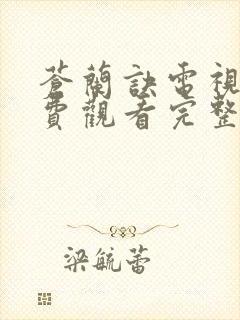 蒼蘭訣電視
費觀看完整
梁毓蕾